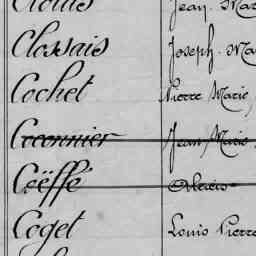 Clossais Joseph. Ma
Cochet Pierre Marie
Coconnier Jean Marie
Coëffé Alexis
Coget Louis Pierre